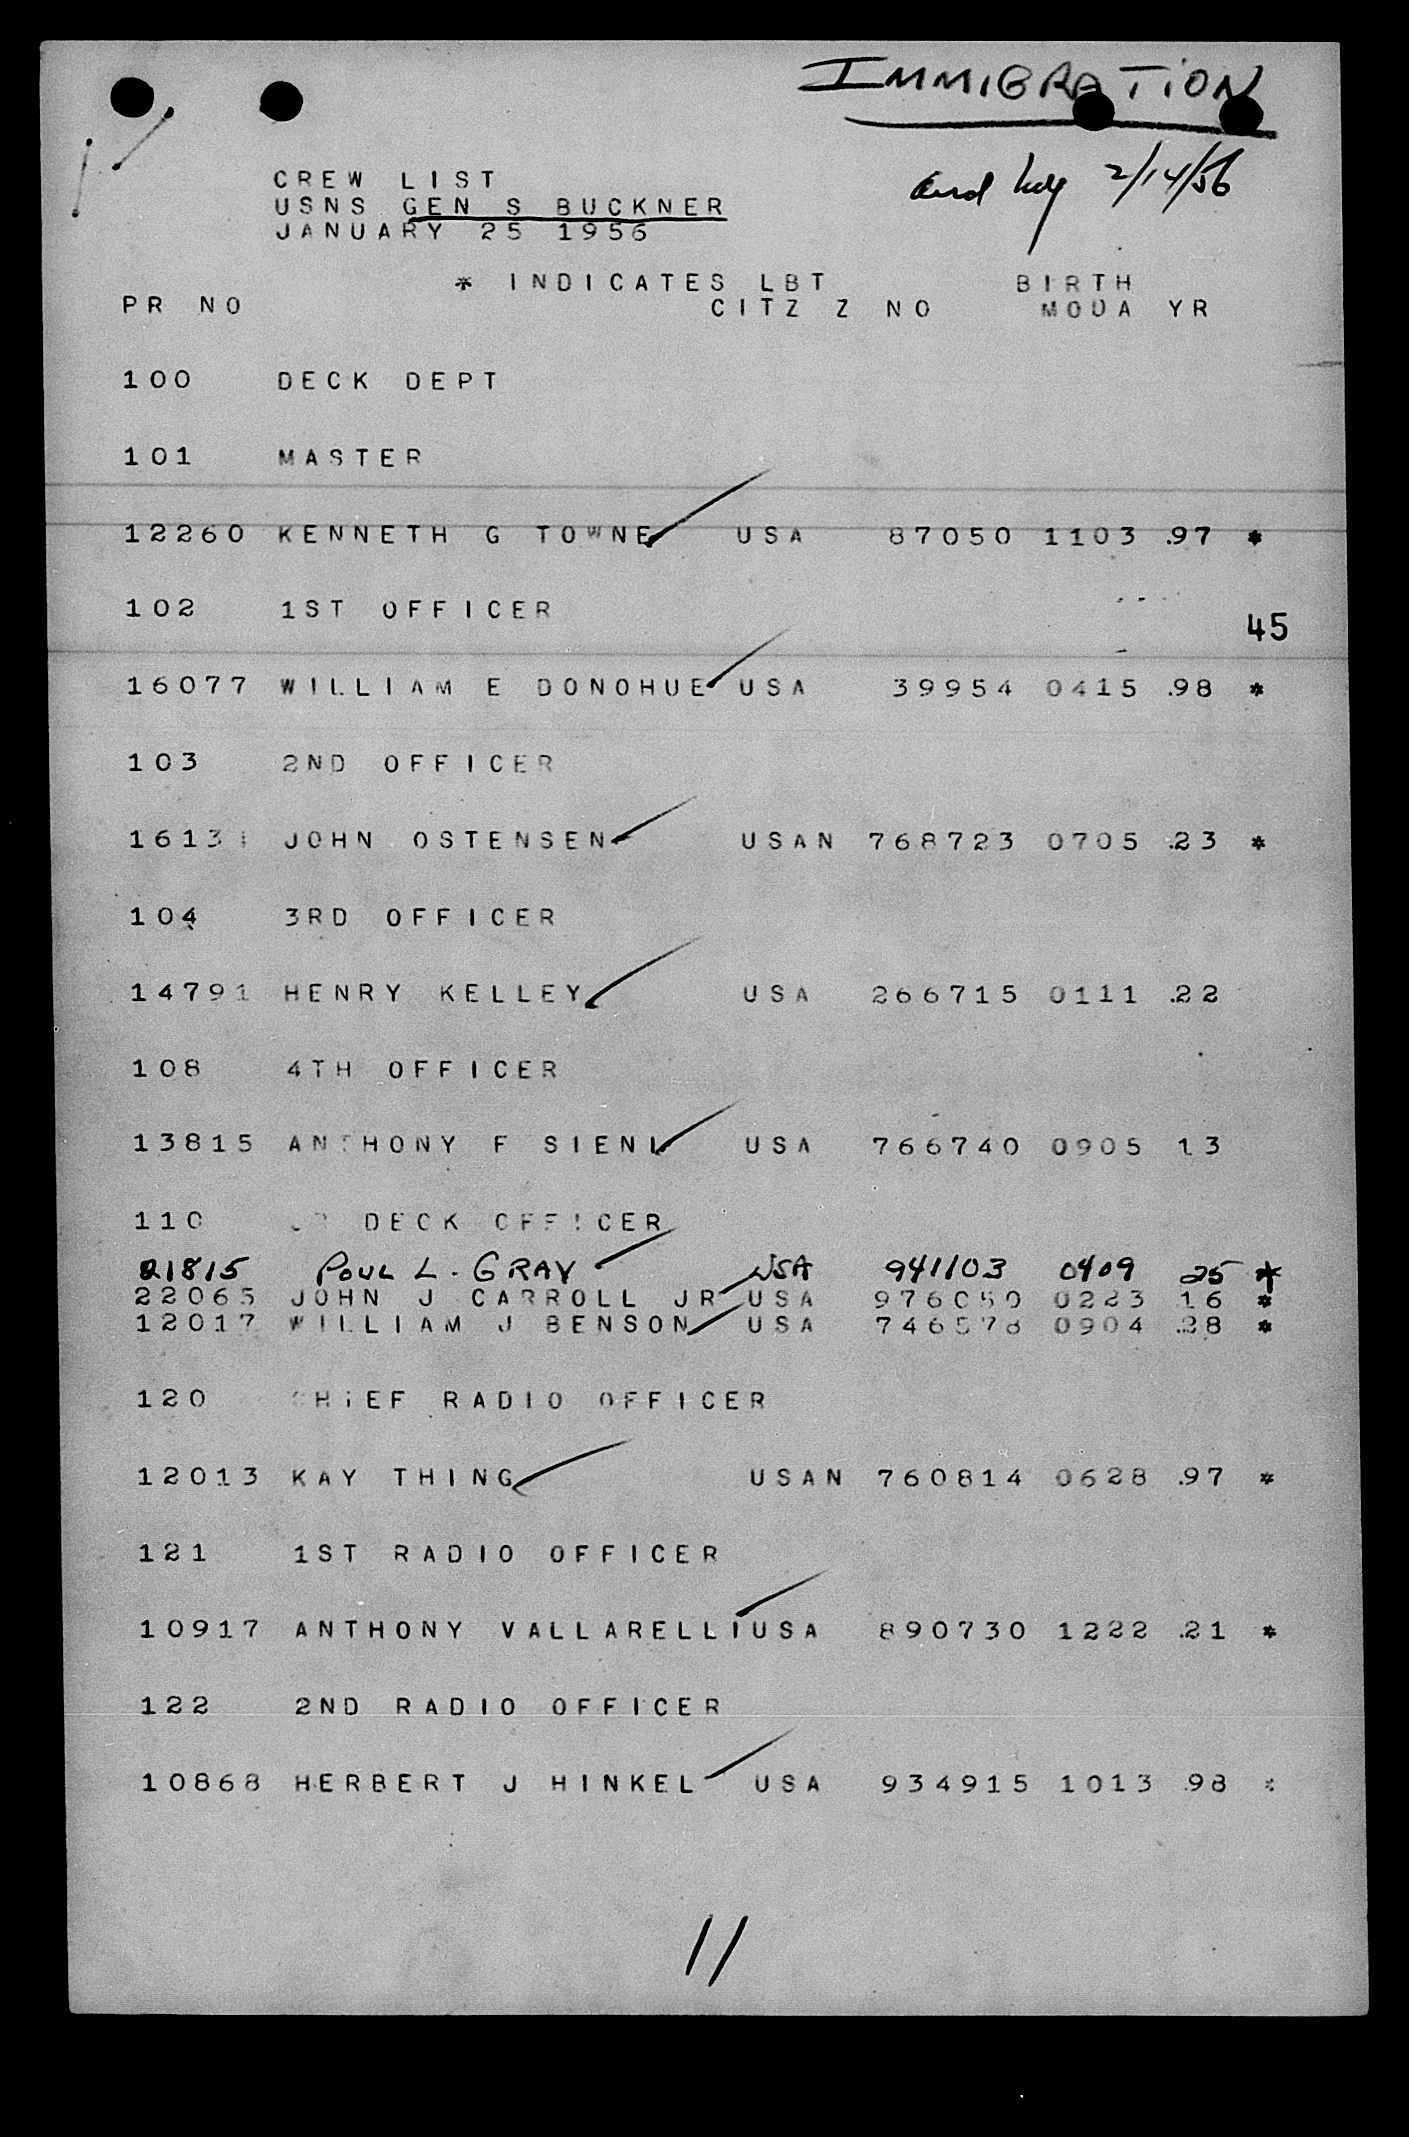 IMMIGRATION
2/14/56
CREW LIST
USNS GEN S BUCKNER
JANUARY 25 1956
* INDICATES LBT BIRTH
PR NO CITZ Z NO MODA YR
100 DECK DEPT
101 MASTER
12260 KENNETH G TOWNE USA 87050 1103 97 *
102 1ST OFFICER
45
16077 WILLIAM E DONOHUE USA 39954 0415 98 *
103 2ND OFFICER
JOHN OSTENSEN USAN 768723 0705 23 *
104 3RD OFFICER
14791 HENRY KELLEY USA 266715 0111 22
108 4TH OFFICER
13815 ANTHONY F SIENI USA 766740 0905 13
110 DECK OFFICER
21815 POUL L. GRAY USA 941103 0409 25 *
22065 JOHN J CARROLL JR USA 0223 16 *
12017 WILLIAM J BENSON USA 0904 28 *
120 CHIEF RADIO OFFICER
12013 KAY THING USAN 760814 0628 97 *
121 1ST RADIO OFFICER
10917 ANTHONY VALLARELLI USA 890730 1222 21 *
122 2ND RADIO OFFICER
10868 HERBERT J HINKEL USA 934915 1013 98 *
11